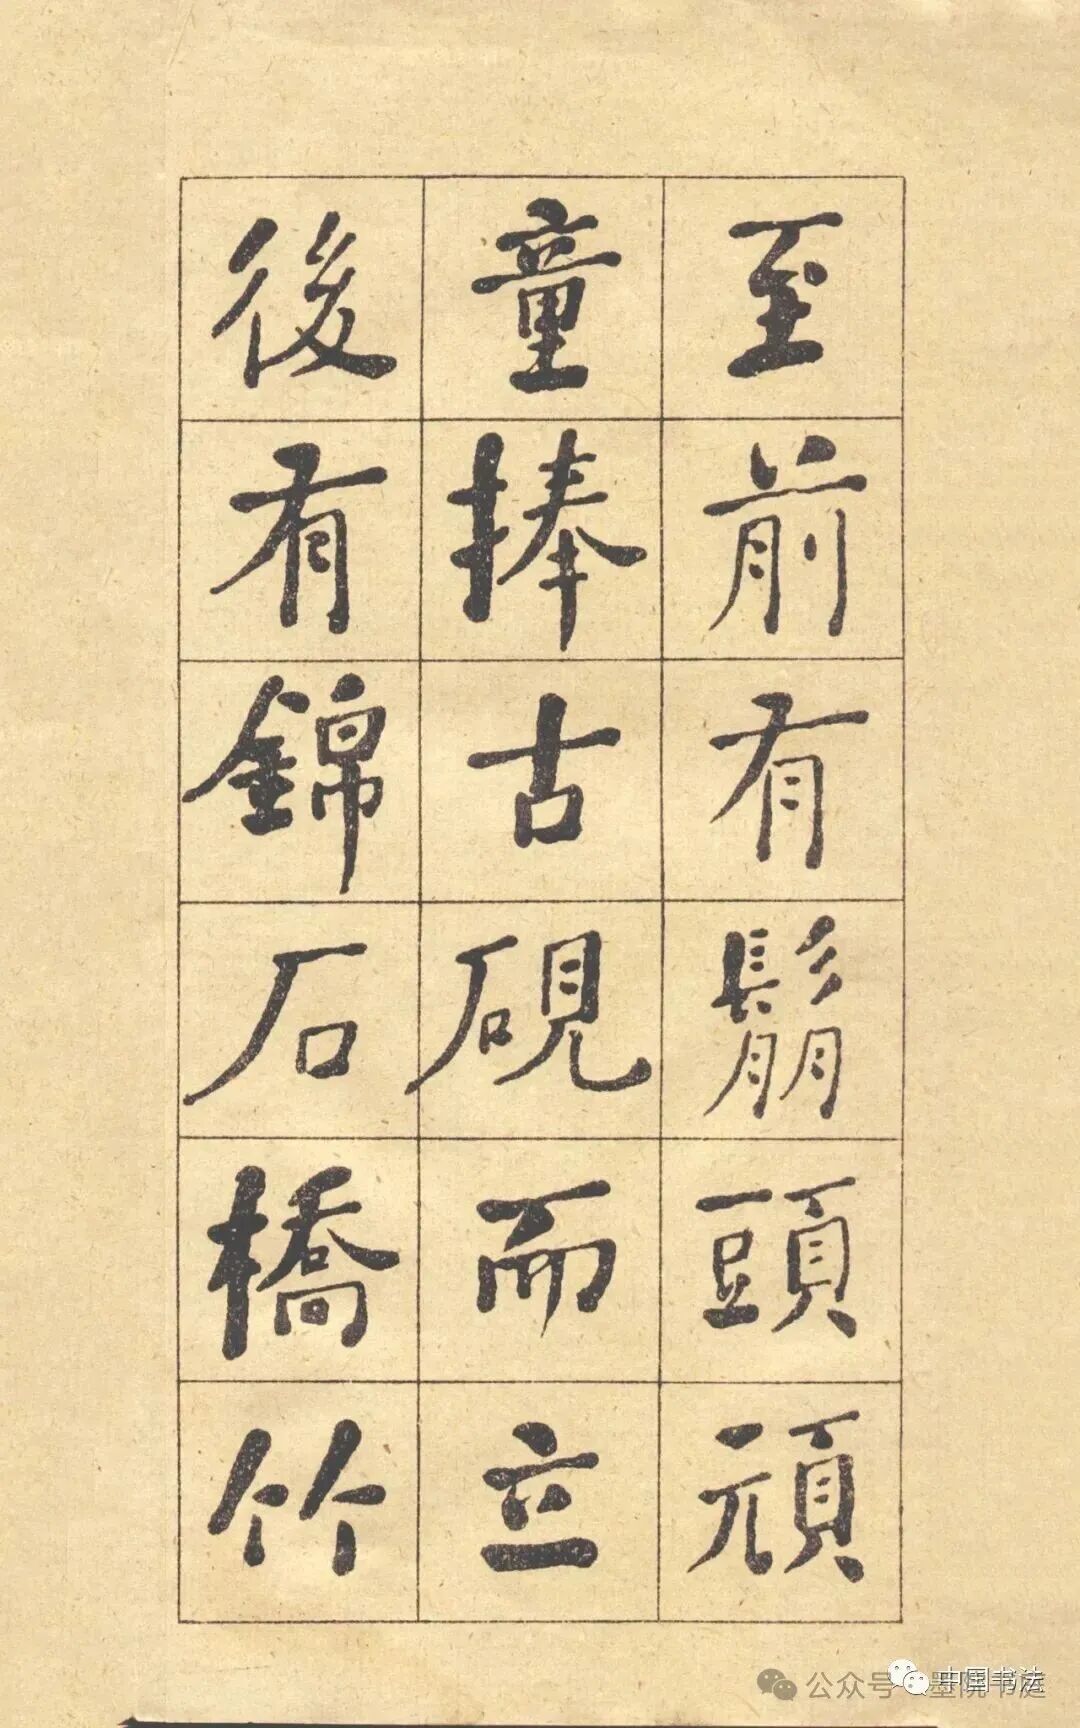 至前有鬅頭頑
童捧古硯而立
後有錦石橋竹
公众号
中国书法